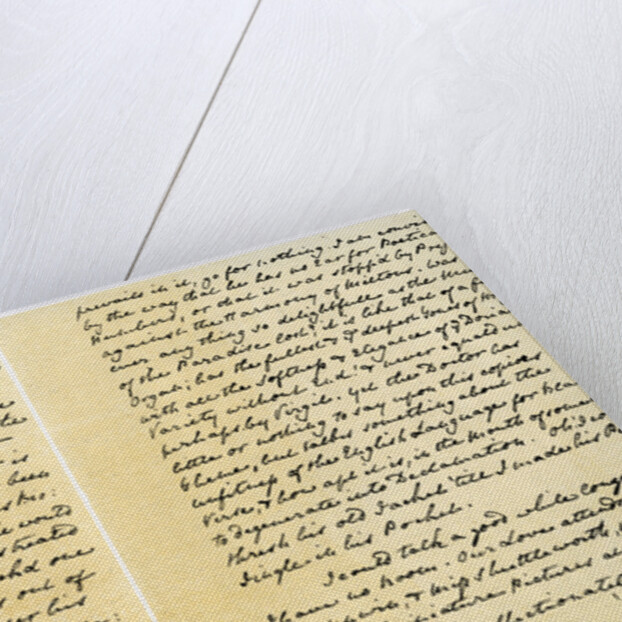 the
is
been
would
treated
and one
out of
his
prevails in it, go for nothing. I am convin
by the way that he has no Ear for Poetica
Numbers, or that it was stopp'd by Prej
against the Harmony of Milton's. Was
ever any thing so delightfull as the Mus
of the Paradise Lost? it is like that of a fi
Organ; has the fullest & the deepest Tones of
with all the Softness & Elegance of the Doria
Variety without End! & never equal'd un
perhaps by Virgil. Yet the Doctor has
little or nothing to say upon this copious
Theme, but talks something about the
unfitness of the English Language for Blan
Verse, & how apt it is, in the Mouth of some
to degenerate into Declamation. Oh! I co
thresh his old Jacket 'till I made his Pe
Jingle in his Pocket.
I could talk a good while long
I have no Room. Our Love attends
& Miss Shuttleworth,
Miniature Pictures at
affectionately